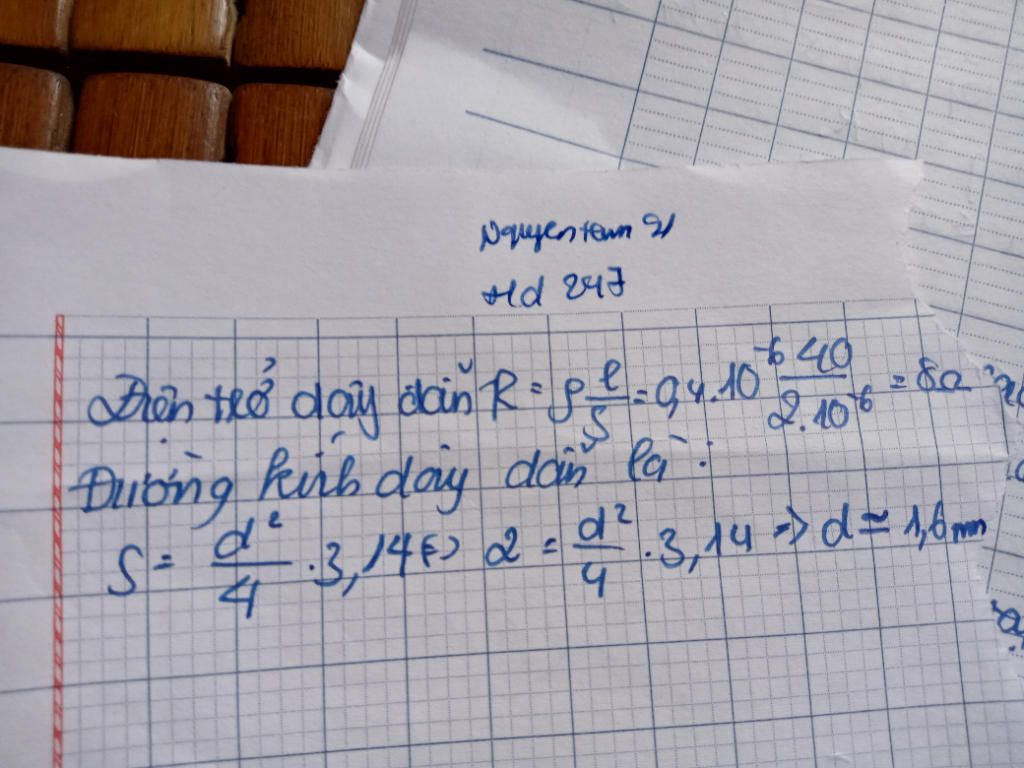 Nguyentam 91
Hd 247
Điện trở dây dẫn R = ρ l/S = 0,4.10^-6 40/2.10^-6 = 8Ω
Đường kính dây dẫn là :
S = d²/4 . 3,14 <=> 2 = d²/4 . 3,14 => d ≃ 1,6 mm